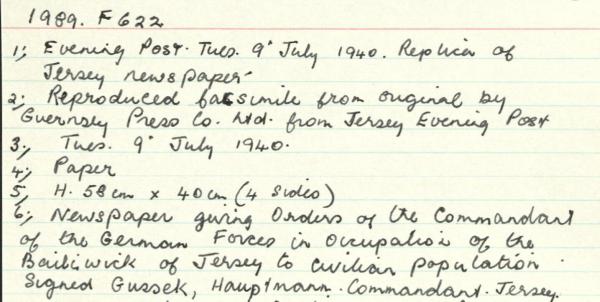 1989. F 622
1; Evening Post. Tues. 9° July 1940. Replica of
Jersey newspaper
2; Reproduced facsimile from original by
Guernsey Press Co. Ltd. from Jersey Evening Post
3; Tues. 9° July 1940.
4; Paper
5; H. 58 cm x 40 cm (4 sides)
6; Newspaper giving Orders of the Commandant
of the German Forces in Occupation of the
Bailiwick of Jersey to civilian population
Signed Gussek, Hauptmann. Commandant. Jersey.